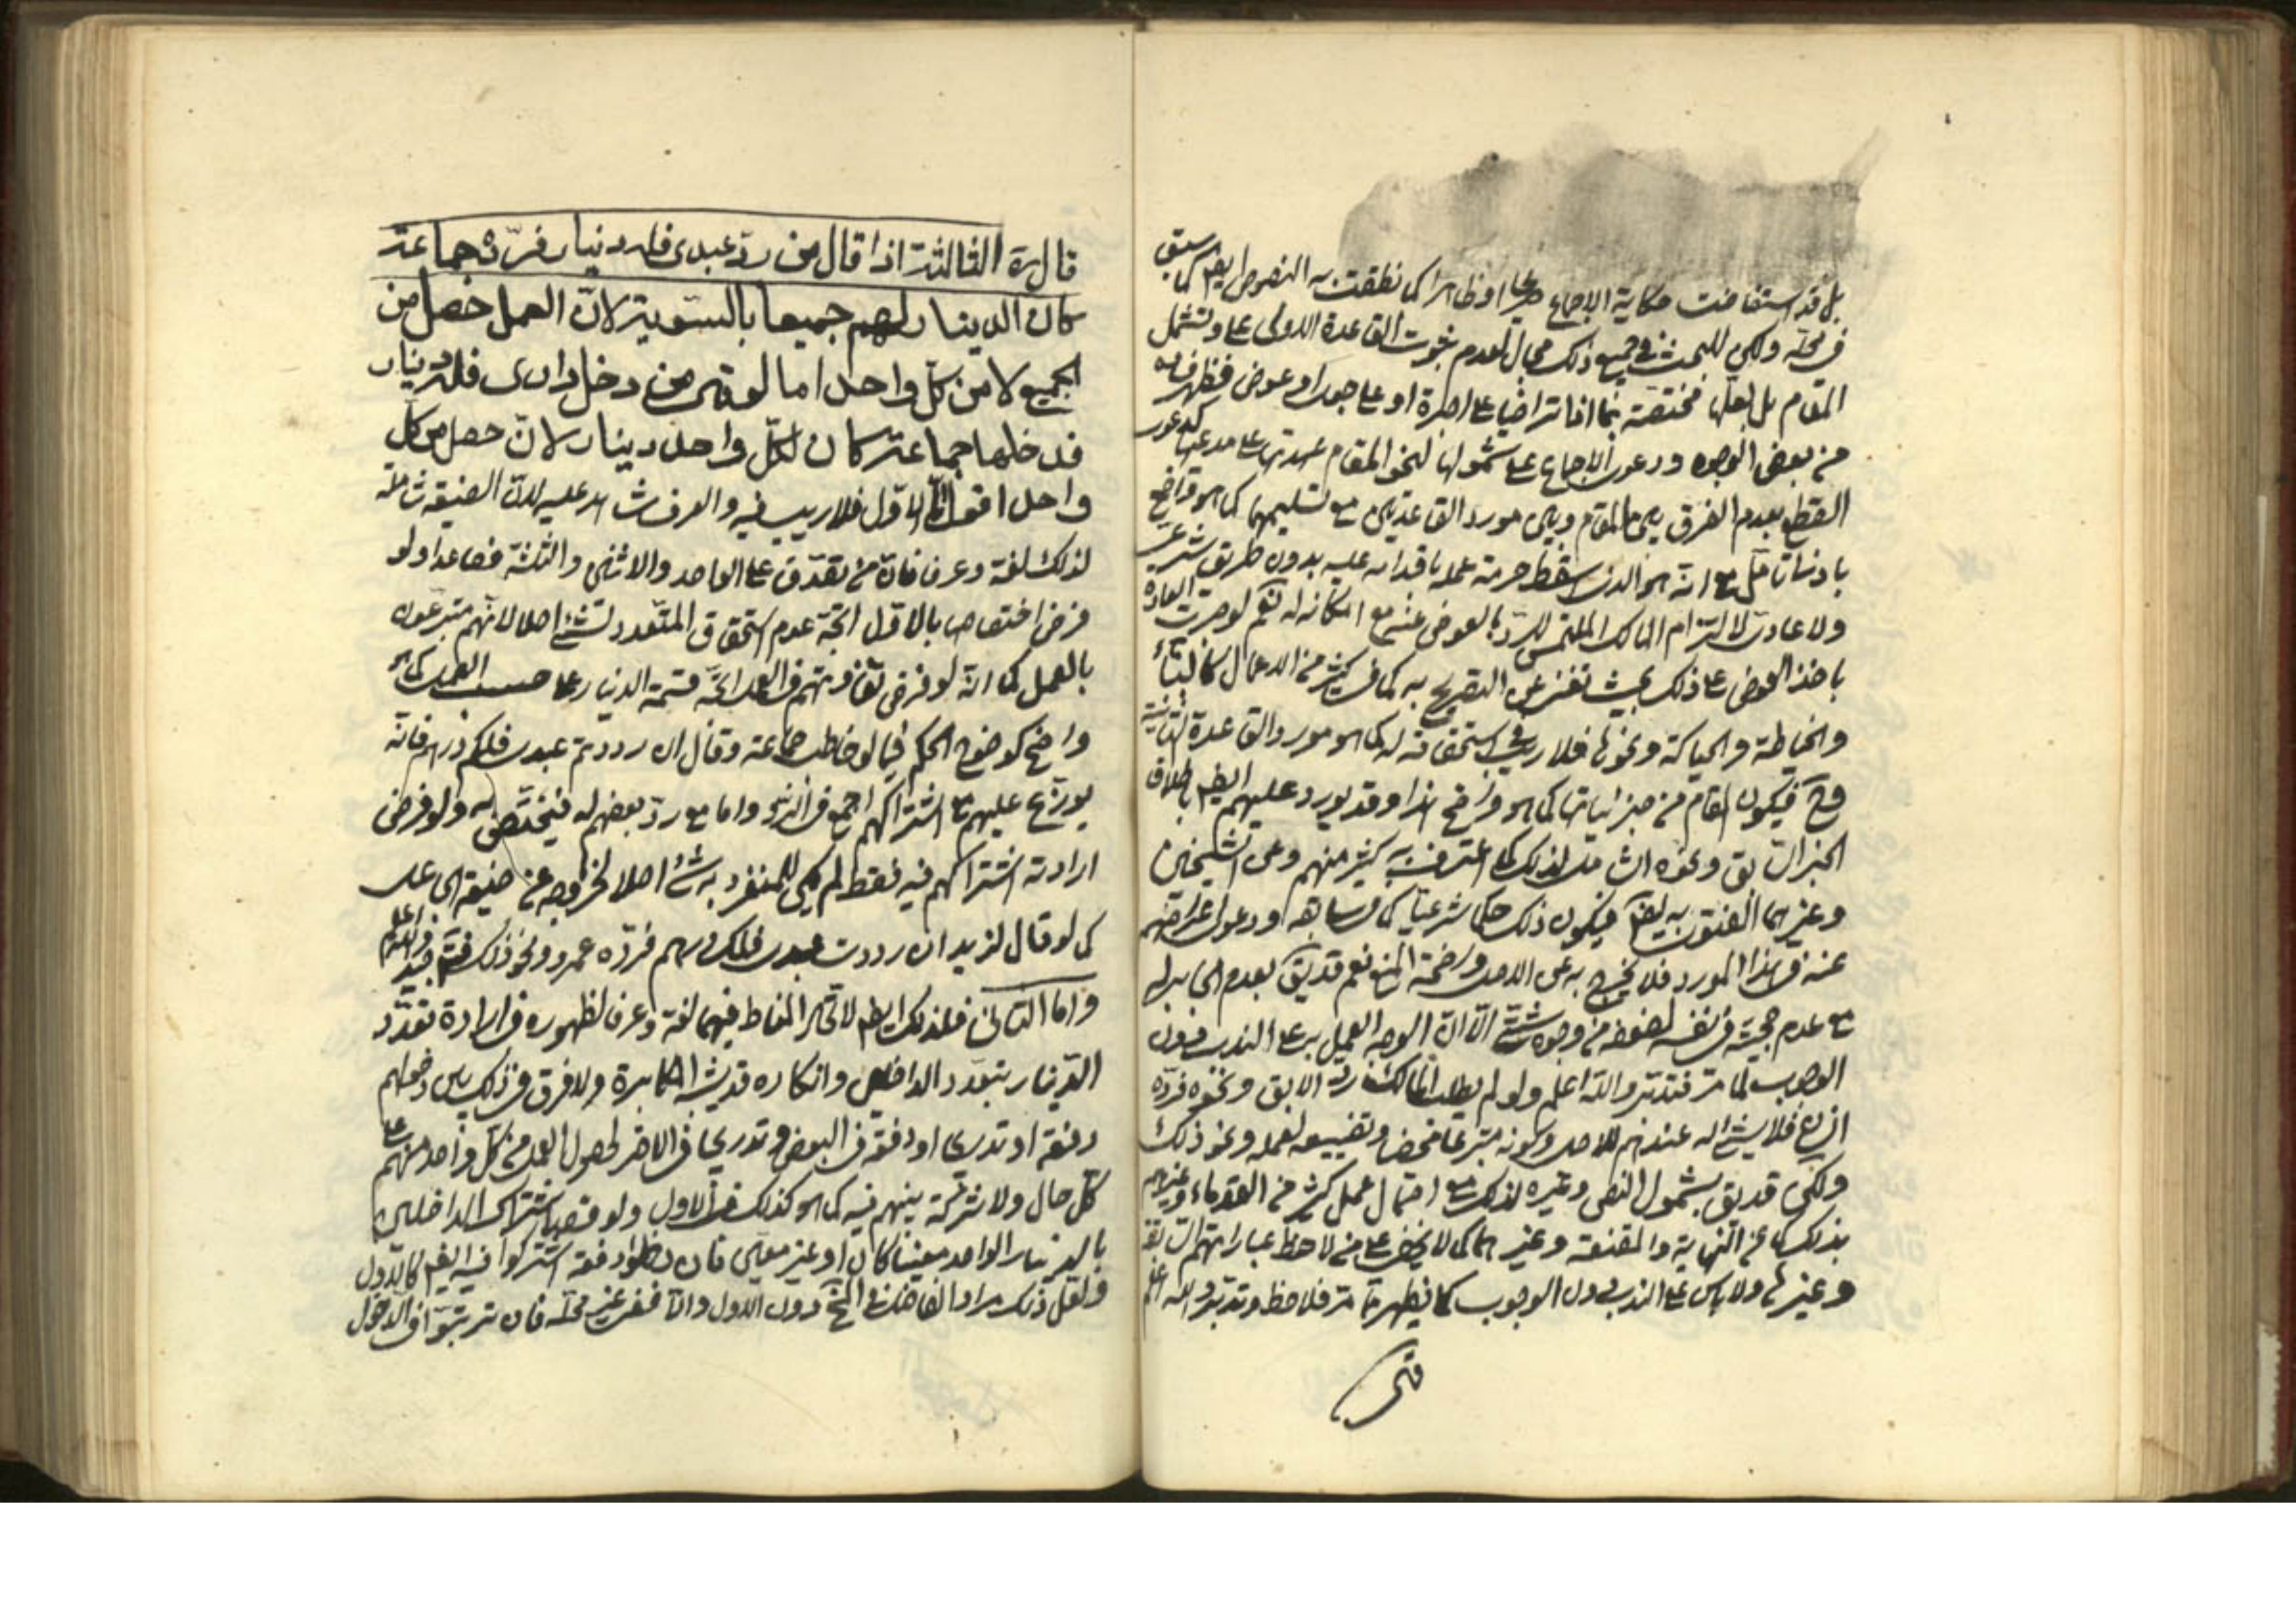 بل قد استفاضت حكاية الاجماع صريحا او ظاهرا كما نطقت به النصوص ايضا كما سبق
فى محله ولكن للبحث فى جميع ذلك مجال لعدم ثبوت القاعدة الاولى على وجه تشمل
المقام بل لعلها مختصة بما اذا تراضيا على اجرة او على جعل او عوض فتظهر
من بعض الوجوه ودعوى الاجماع على شمولها لنحو المقام عهدتها على مدعيها كدعوى
القطع بعدم الفرق بين المقام وبين مورد القاعدتين مع تسليمهما كما هو واضح
بادنى تامل مع انه هو الذى اسقط حرمة عمله باقدامه عليه بدون طريق شرعى
ولا عادى لالتزام المالك الملتمس للرد بالعوض عنه مع امكانه له نعم لو جرت العادة
باخذ العوض على ذلك بحيث تغنى عن التصريح به كما فى كثير من الاعمال كالبناء
والخياطة والحياكة ونحوها فلا ريب فى استحقاقه له كما هو مورد القاعدة الثانية
وح فيكون المقام من جزئياتها كما هو واضح هذا وقد يورد عليهم ايضا باطلاق
الخبر السابق ونحوه الشامل لذلك كما اعترف به كثير منهم وعن الشيخين
وغيرهما الفتوى به ايضا فيكون ذلك حكما شرعيا كما فى سابقه ودعوى اعراضهم
عنه فى هذا المورد فلا يخرج به عن الاصل واضحة المنع نعم قد يق بعدم انجباره
مع عدم حجيته فى نفسه لضعفه من وجوه شتى الا ان الوجه العمل به على الندب دون
الوجوب لما مر فتدبر والله اعلم ولو لم يطلب المالك رد الابق ونحوه فرده
انسان فلا شئ له عندهم للاصل وكونه متبرعا محضا وتضييعه لعمله ونحو ذلك
ولكن قد يق بشمول النص وغيره لذلك مع احتمال عمل كثير من القدماء وغيرهم
بذلك كما عن النهاية والمقنعة وغيرهما كما لا يخفى على من لاحظ عباراتهم السابقة
وغيرها ولا باس على الندب دون الوجوب كما يظهر مما مر فلاحظ وتدبر والله اعلم
قال ره الثالثة اذا قال من رد عبدى فله دينار فرده جماعة
كان الدينار لهم جميعا بالسوية لان العمل حصل من
الجميع لا من كل واحد اما لو قال من دخل دارى فله دينار
فدخلها جماعة كان لكل واحد دينار لان حصل من كل
واحد اقول اما الاول فلا ريب فيه والعرف شاهد عليه لان الصيغة شاملة
لذلك لغة وعرفا فانه من تصدق على الواحد والاثنين والثلثة فصاعدا ولو
فرض اختصاصها بالاول اتجه عدم استحقاق المتعدد لشئ اصلا لانهم متبرعون
بالعمل كما انه لو فرض تفاوتهم فى العمل اتجه قسمة الدينار على حسب العمل كما هو
واضح كوضوح الحكم فيما لو خاطب جماعة وقال ان رددتم عبدى فلكم درهم فانه
يوزع عليهم مع اشتراكهم اجمع فى الرد واما مع رد بعضهم له فيختص به ولو فرض
ارادته اشتراكهم فيه فقط لم يكن للمنفرد به شئ اصلا لخروجه عن صيغة الجاعل
كما لو قال لزيد ان رددت عبدى فلك درهم فرده عمرو ونحو ذلك فتدبر جيدا والله اعلم
واما الثانى فلذلك ايضا لاتحاد المناط فيهما لغة وعرفا لظهوره فى ارادة تعدد
الدينار بتعدد الداخلين وانكاره قد يشبه المكابرة ولا فرق فى ذلك بين دخولهم
دفعة او تدريجا او دفعة فى البعض وتدريجا فى الاخر لحصول العمل من كل واحد منهم على
كل حال ولا شركة بينهم فيه كما هو كذلك فى الاول ولو قصد اشتراك الداخلين
بالدينار الواحد معينا كان او غير معين فان دخلوا دفعة اشتركوا فيه ايضا كالاول
ولعل ذلك مراد الفاضل فى دون الاول والا ففى غير محله فان ترتبوا فى الدخول